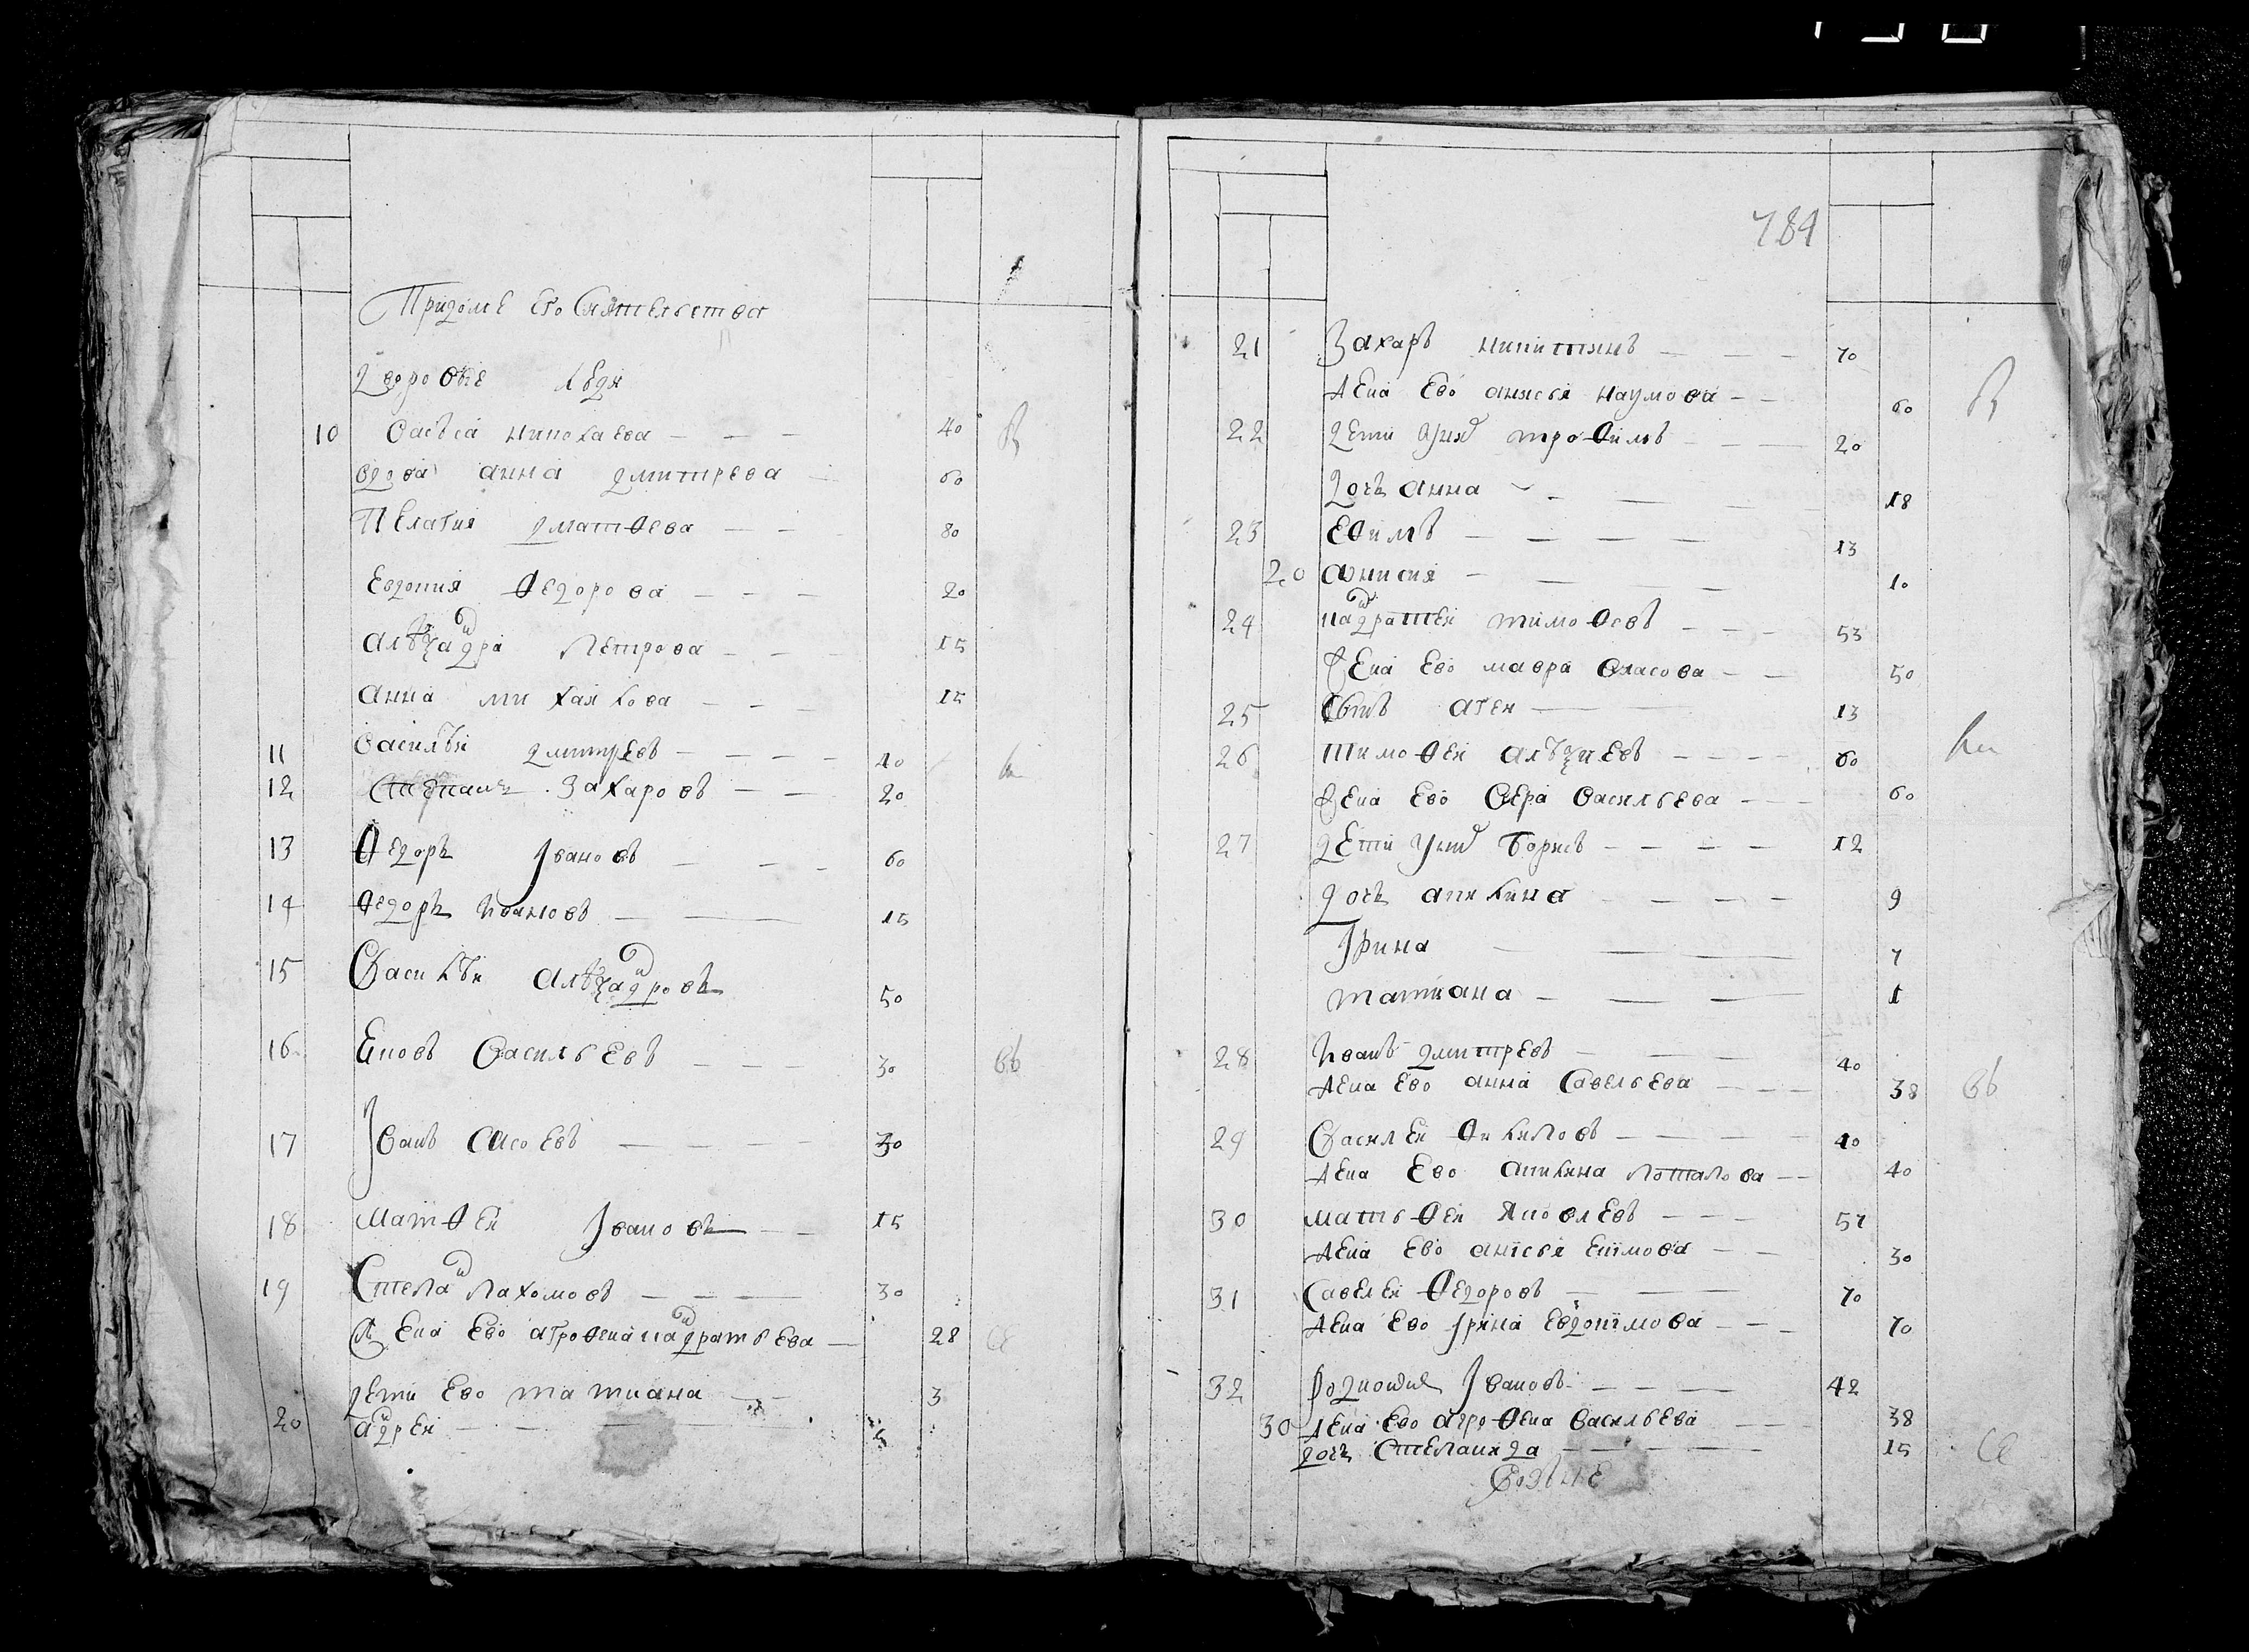 Придоме его Сиятельства
дворовые люди
10 Васѣса николаева — — — 40
вдова анна дмитрева — 60
Пелагия дматѳеева — — 80
Евдокия Ѳедорова — — — 20
алѣѯандра Петрова — — — 15
анна михаилова — — — 15
11 Василѣи дмитревъ — — — — 40
12 Степанъ Захаровъ — — 20
13 Ѳедоръ Iвановъ — — — 60
14 Ѳедоръ Ивановъ — — 15
15 Василѣи алѣѯандровъ 50
16 Васильевъ — — — 30 вь
17 Iванъ — — — — 30
18 Матѳеи Iвановъ — — 15
19 Степанъ Пахомовъ — — — 30
жена Ево агроѳена кандратьева — 28
дети Ево татиана — — 3
20 андреи — — — 5
784
21 Захаръ никитинъ — — — 70
жена Ево анисья наумова — — 60
22 дети трофимъ — — — 20
дочь анна — — — 18
23 Ефимъ — — — — 13
20 анисия — — — — 10
24 кандратеи тимоѳеевъ — — — 53
жена Ево мавра власова — — 50
25 Сынъ агеи — — 13
26 тимоѳеи алѣѯиевъ — — — — 60
жена Ево Вера васильева — — 60
27 дети Борисъ — — — — 12
дочь акилина — — — — 9
Iрина — — — 7
татиана — — — 1
28 Иванъ дмитревъ — — — 40
жена Ево анна Савельева — — — 38 вь
29 Василеи Филиповъ — — — — 40
жена Ево акилина потапова — — 40
30 матьѳеи Яковлевъ — — — 57
жена Ево анисья — — 30
31 Савелеи Ѳедоровъ — — — 70
жена Ево Iрина Евдокимова — — — 70
32 Iвановъ — — — — 42
30 жена Ево агроѳена васильева — — 38
дочь Степанида — — — — 15